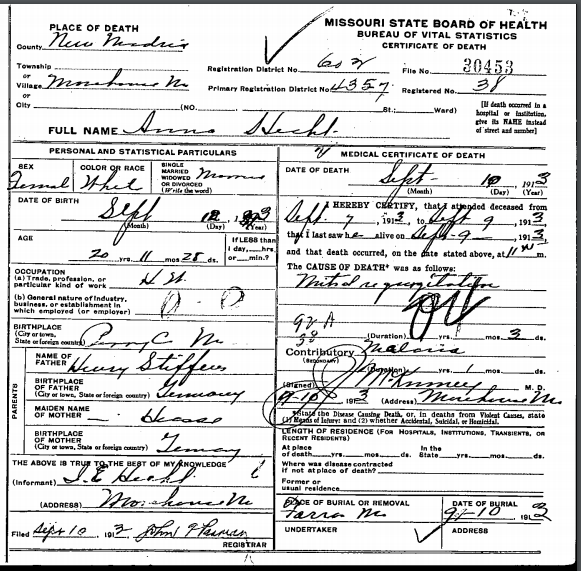 MISSOURI STATE BOARD OF HEALTH
BUREAU OF VITAL STATISTICS
CERTIFICATE OF DEATH
PLACE OF DEATH
County New Madrid
Township
or
Village Morehouse Mo
or
City (NO. St.; Ward)
Registration District No. 602
File No. 30453
Primary Registration District No. 4357
Registered No. 38
[If death occurred in a hospital or institution, give its NAME instead of street and number]
FULL NAME Anna Hecht
PERSONAL AND STATISTICAL PARTICULARS
SEX
Femal
COLOR OR RACE
Whet
SINGLE
MARRIED
WIDOWED
OR DIVORCED
(Write the word)
DATE OF BIRTH
Sept 12
(Month) (Day) (Year)
AGE
20 yrs. 11 mos. 28 ds.
If LESS than
1 day, hrs.
or min.?
OCCUPATION
(a) Trade, profession, or
particular kind of work H W
(b) General nature of industry,
business, or establishment in
which employed (or employer)
BIRTHPLACE
(City or town,
State or foreign country) Perry C Mo
PARENTS
NAME OF
FATHER Henry
BIRTHPLACE
OF FATHER
(City or town, State or foreign country) Germany
MAIDEN NAME
OF MOTHER
BIRTHPLACE
OF MOTHER
(City or town, State or foreign country) Germany
THE ABOVE IS TRUE TO THE BEST OF MY KNOWLEDGE
(Informant) J.E Hecht
(ADDRESS) Morehouse Mo
Filed Sept 10, 1913 John
REGISTRAR
MEDICAL CERTIFICATE OF DEATH
DATE OF DEATH
Sept 10 1913
(Month) (Day) (Year)
I HEREBY CERTIFY, that I attended deceased from
Sept 7, 1913, to Sept 9, 1913,
that I last saw h alive on Sept 9, 1913,
and that death occurred, on the date stated above, at 11 m.
The CAUSE OF DEATH* was as follows:
Mitral regurgitation
92 A
(Duration) yrs. mos. 3 ds.
Contributory Malaria
(SECONDARY)
(Duration) yrs. 1 mos. ds.
(Signed) M. D.
9-10, 1913 (Address) Morehouse Mo
*State the Disease Causing Death, or, in deaths from Violent Causes, state
(1) Means of Injury; and (2) whether Accidental, Suicidal, or Homicidal.
LENGTH OF RESIDENCE (For Hospitals, Institutions, Transients, or
Recent Residents)
At place
of death yrs. mos. ds.
In the
State yrs. mos. ds.
Where was disease contracted
if not at place of death?
Former or
usual residence
PLACE OF BURIAL OR REMOVAL
Farrar Mo
DATE OF BURIAL
9-10, 1913
UNDERTAKER
ADDRESS